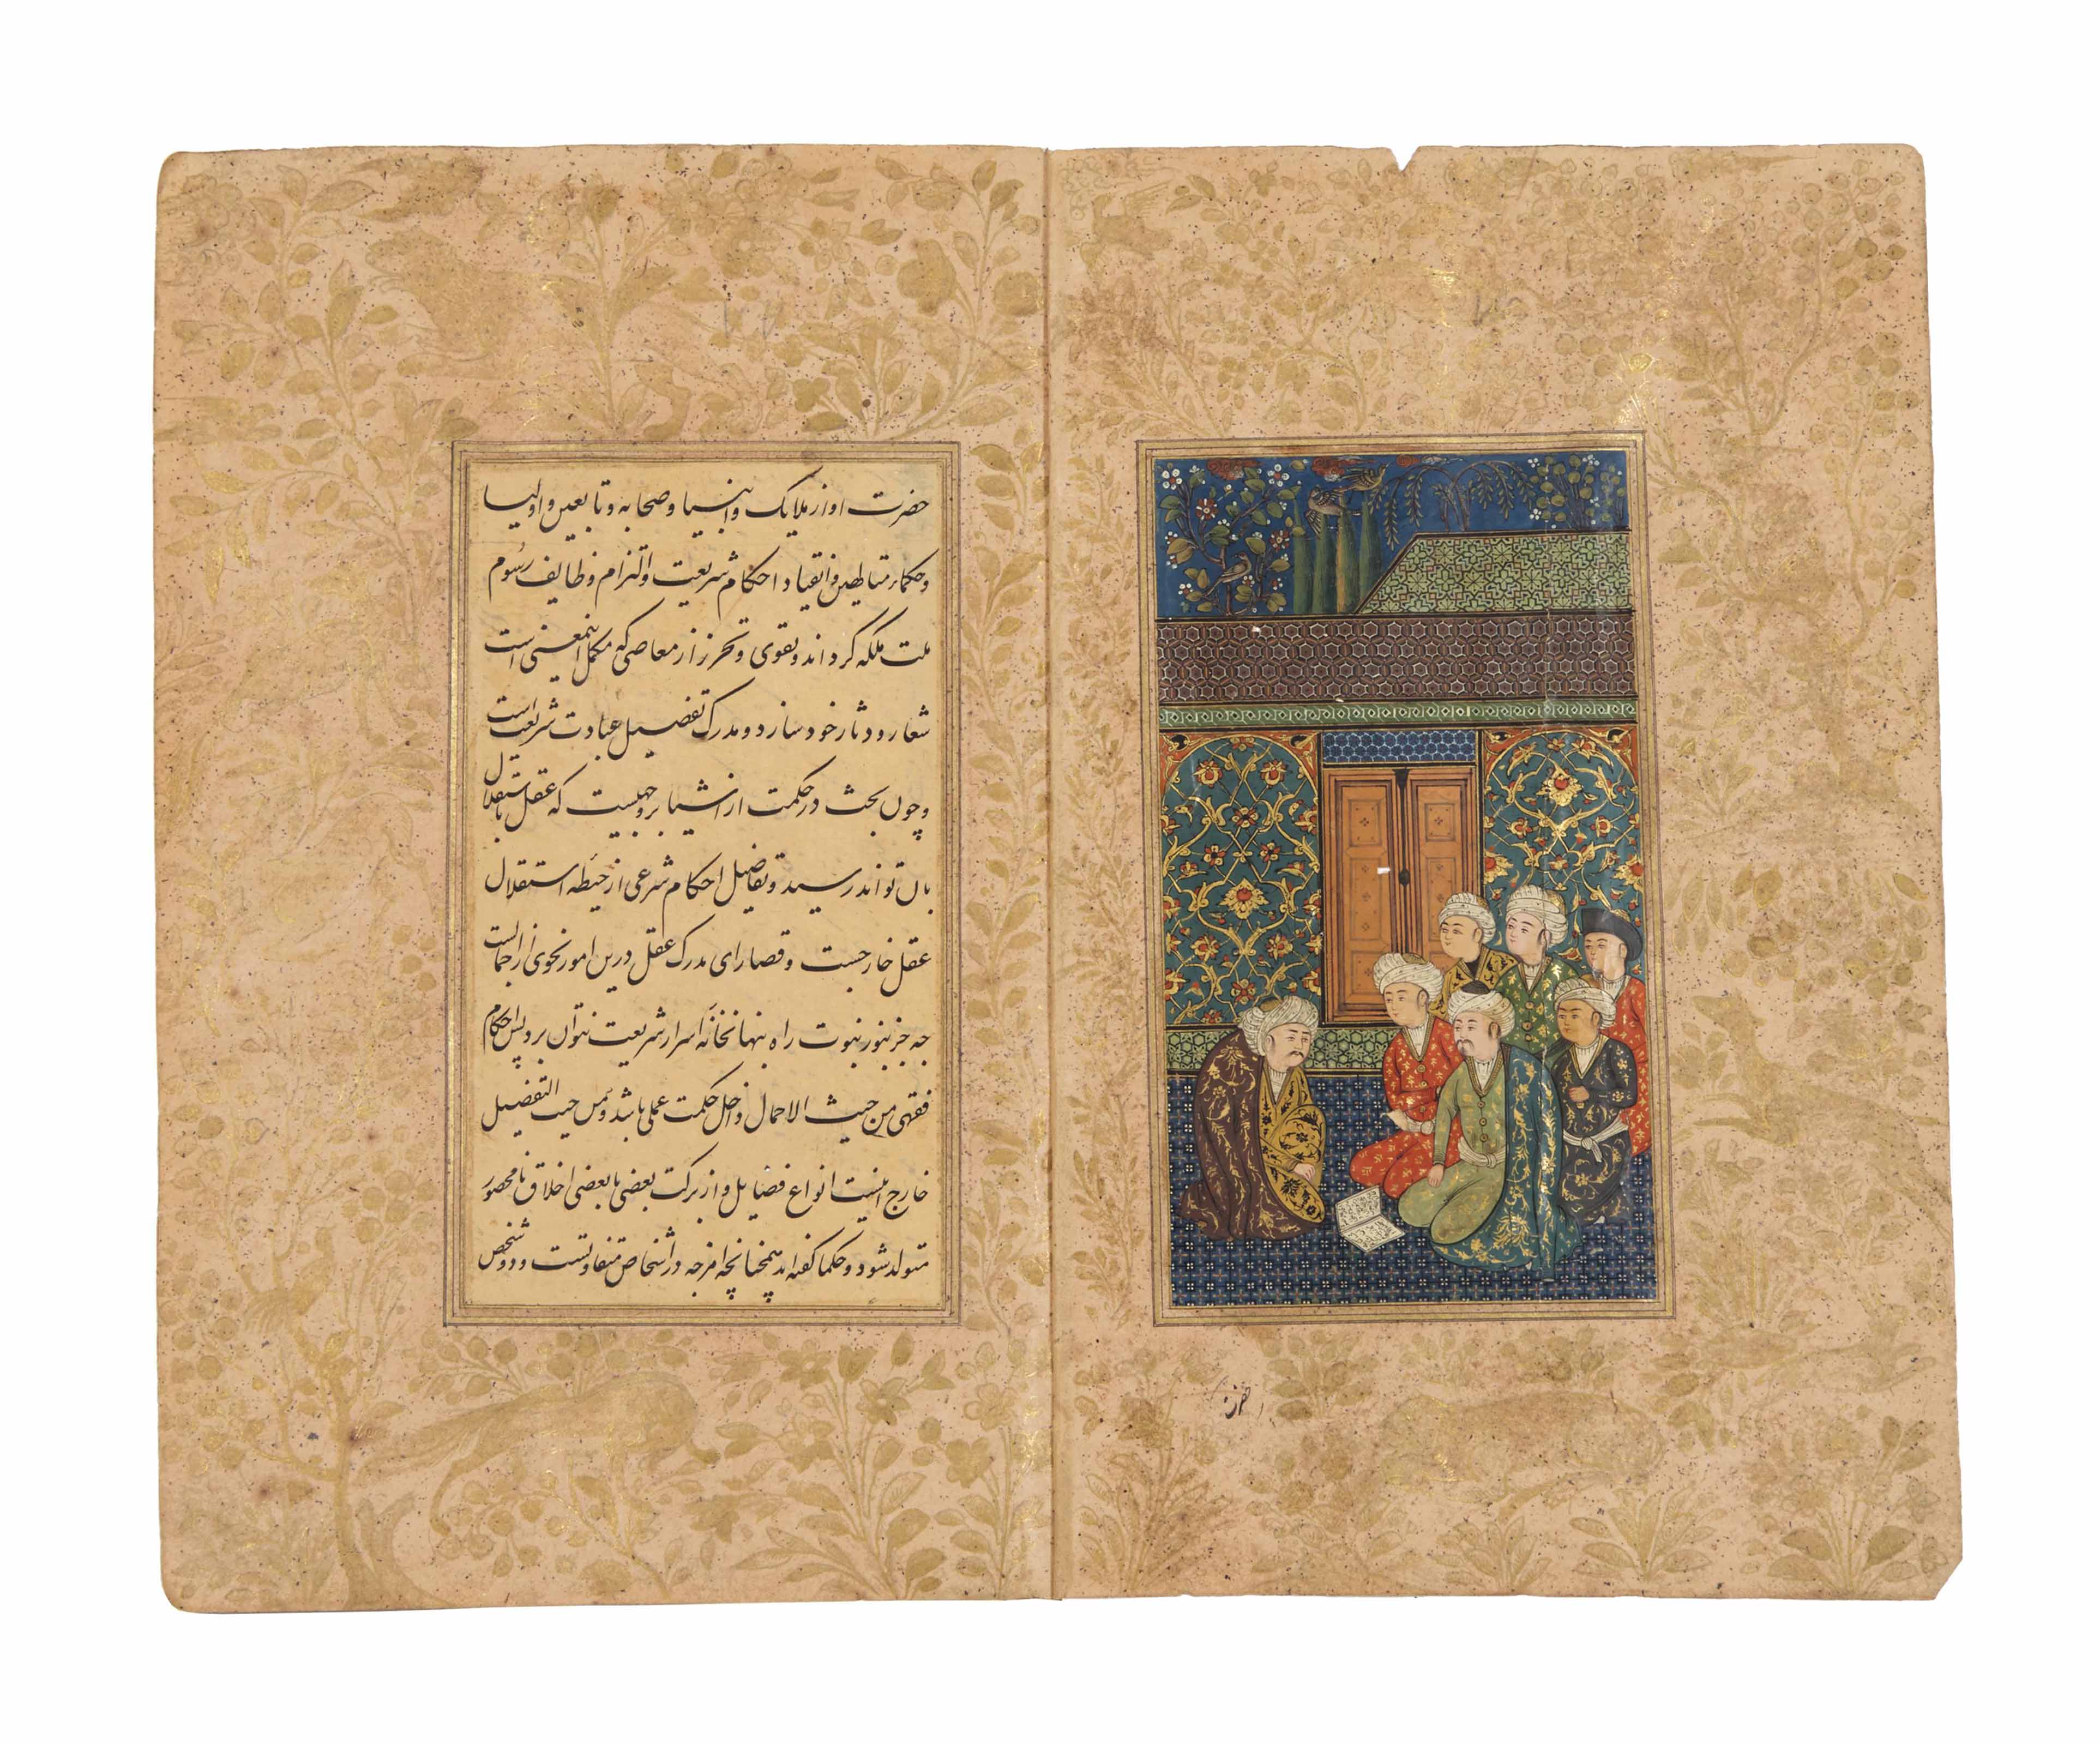 حضرت او از ملایک و انبیا و صحابه و تابعین و اولیا
و حکما متاطین و انقیاد احکام شریعت و التزام وظایف رسوم
ملت ملکه گرداند و تقوی و تحرز از معاصی که مکمل اینمعنی است
شعار و دثار خود سازد و مدرک تفضیل عبادت شریعت است
و چون بحث در حکمت از اشیا بر وجهیست که عقل باستقلال
بان تواند رسید و تفاضیل احکام شرعی از حیطه استقلال
عقل خارجست و قصارای مدرک عقل درین امور نحوی از اجمالست
جه جز بنور نبوت راه بنهانخانه اسرار شریعت نتوان برد پس احکام
فقهی من حیث الاجمال داخل حکمت عملی باشد و من حیث التفضیل
خارج اینست انواع فضایل و از ترکت بعضی با بعضی اخلاق نامحصور
متولد شود و حکما گفته‌اند همچنانچه امزجه در اشخاص متفاوتست و دو شخص